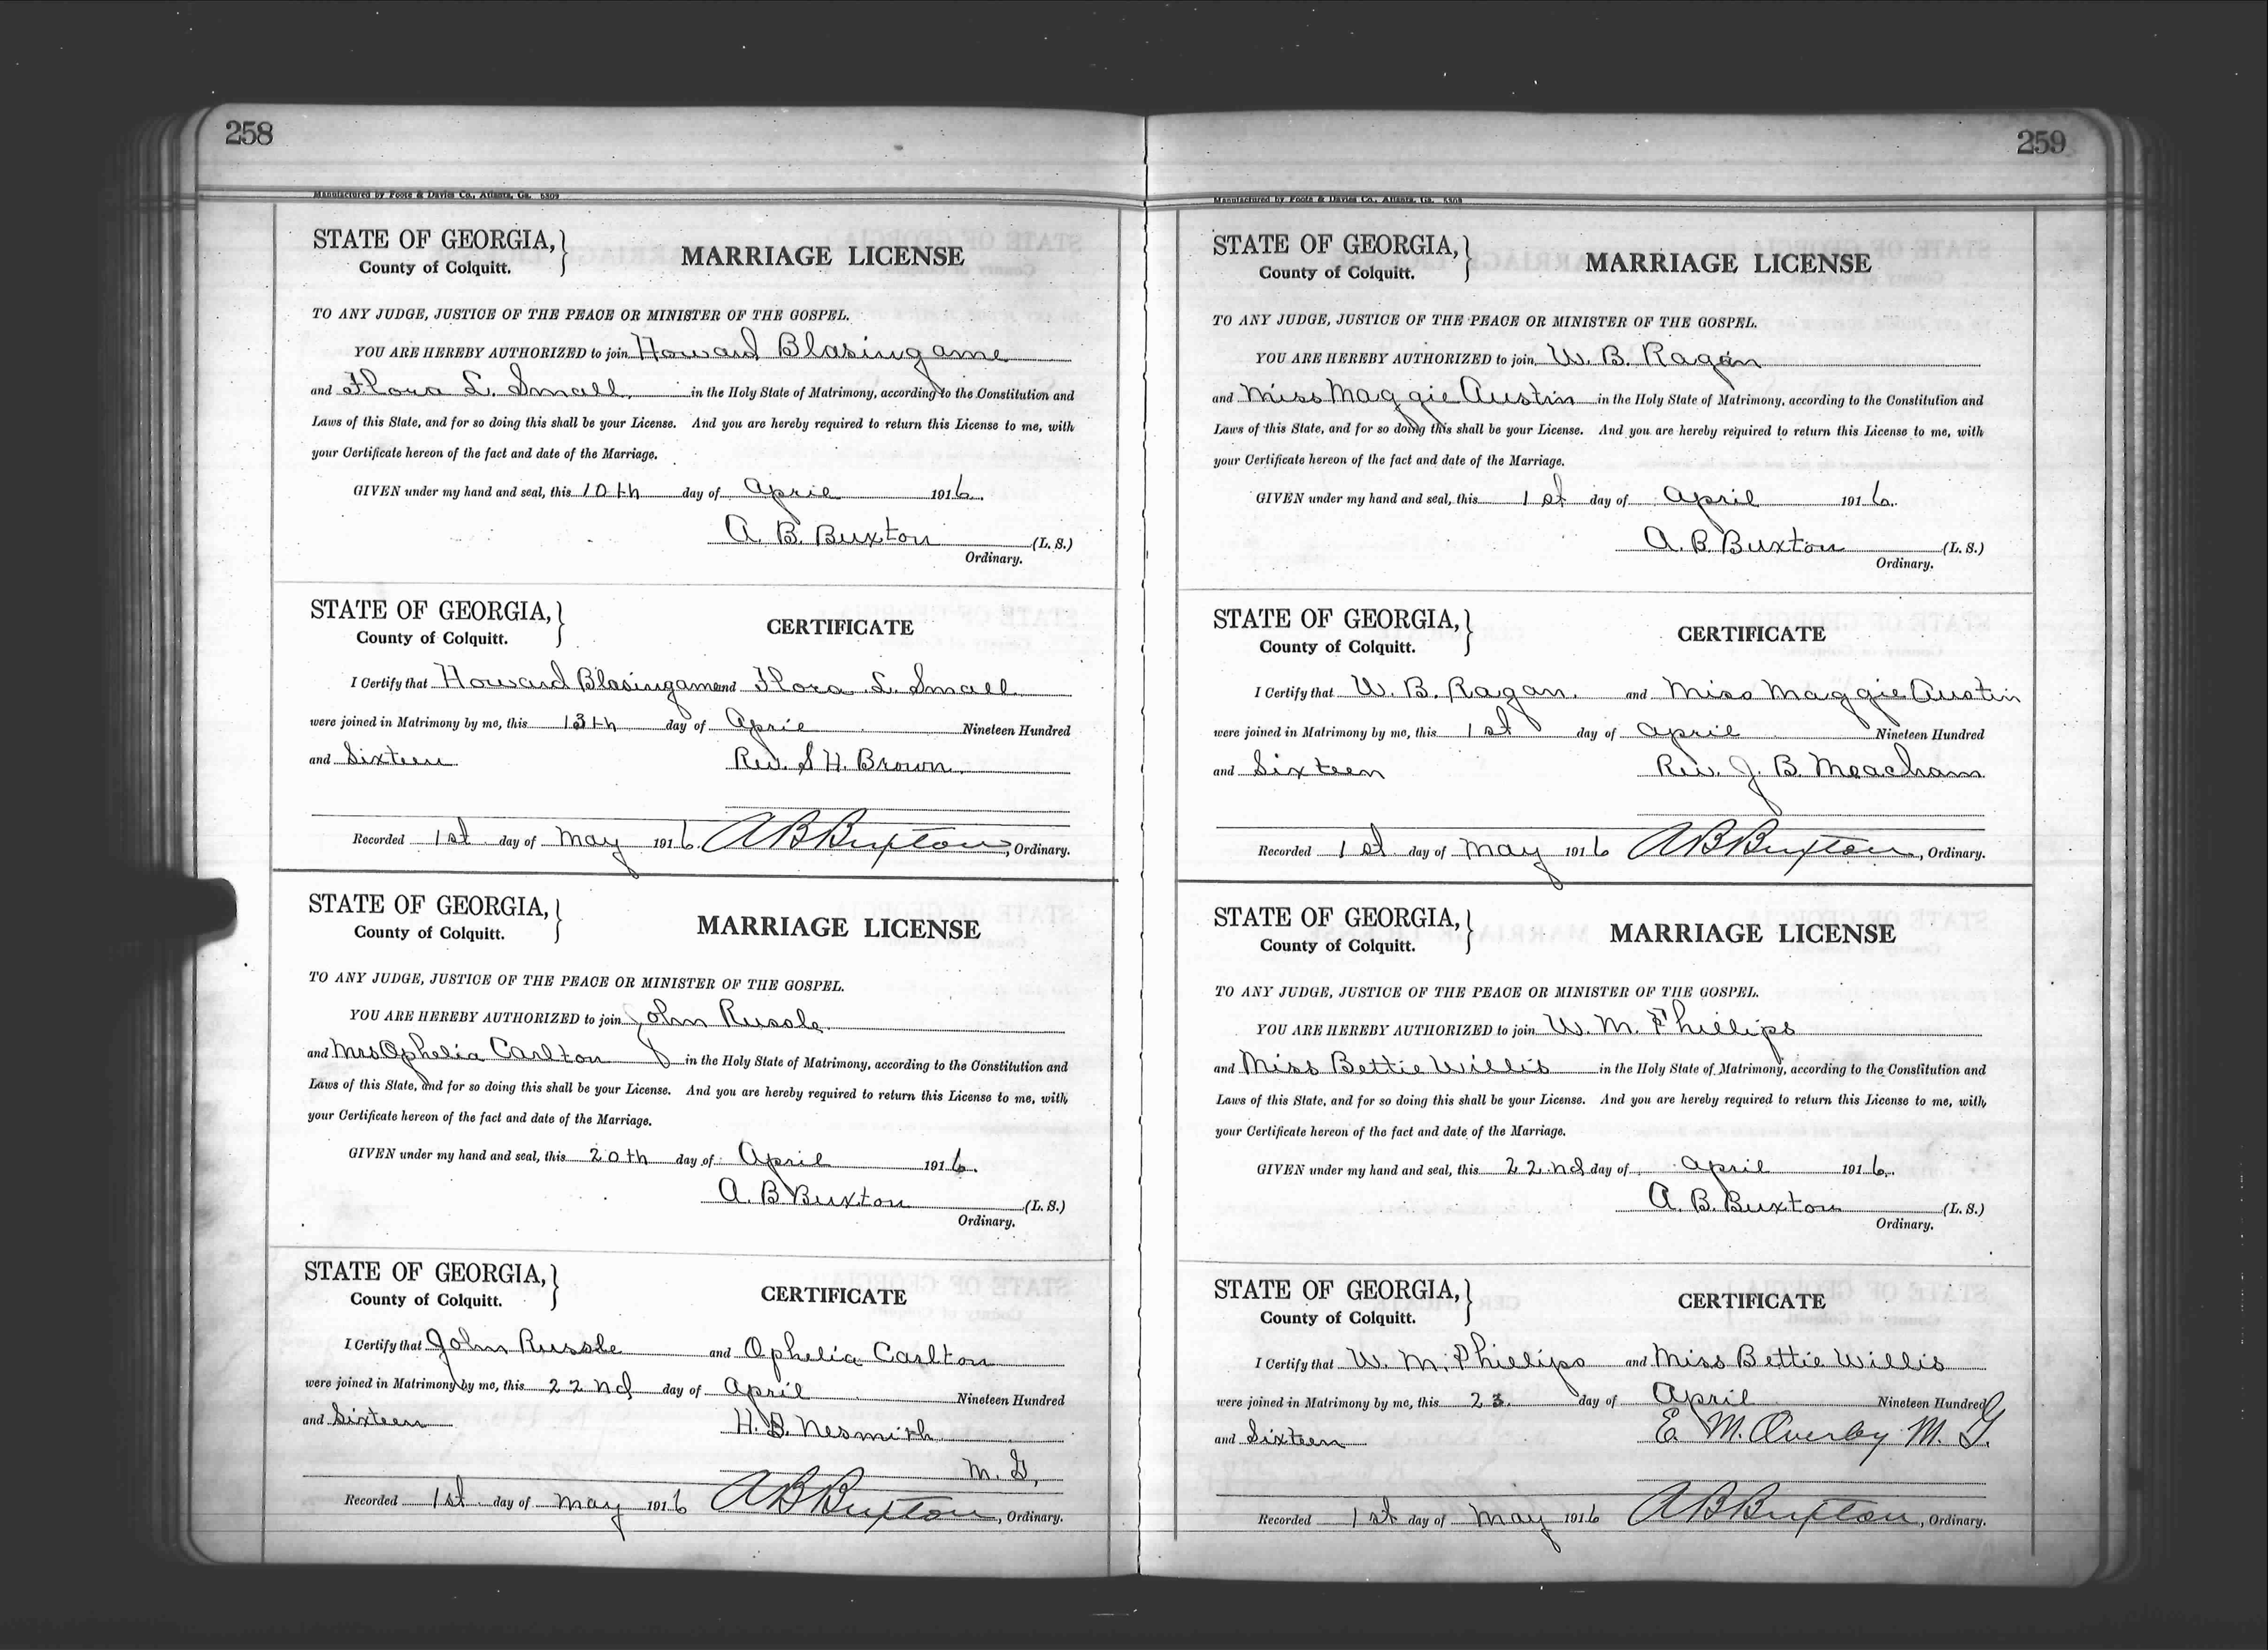 258
Manufactured by Foote & Davies Co., Atlanta, Ga. 5809
STATE OF GEORGIA,
County of Colquitt.
MARRIAGE LICENSE
TO ANY JUDGE, JUSTICE OF THE PEACE OR MINISTER OF THE GOSPEL.
YOU ARE HEREBY AUTHORIZED to join Howard Blasingame
and Flora L. Small, in the Holy State of Matrimony, according to the Constitution and
Laws of this State, and for so doing this shall be your License. And you are hereby required to return this License to me, with
your Certificate hereon of the fact and date of the Marriage.
GIVEN under my hand and seal, this 10th day of April 1916.
A. B. Buxton (L. S.)
Ordinary.
STATE OF GEORGIA,
County of Colquitt.
CERTIFICATE
I Certify that Howard Blasingame and Flora L. Small
were joined in Matrimony by me, this 13th day of April Nineteen Hundred
and Sixteen Rev. S H. Brown.
Recorded 1st day of May 1916. A B Buxton, Ordinary.
STATE OF GEORGIA,
County of Colquitt.
MARRIAGE LICENSE
TO ANY JUDGE, JUSTICE OF THE PEACE OR MINISTER OF THE GOSPEL.
YOU ARE HEREBY AUTHORIZED to join John Russle
and Mrs Ophelia Carlton in the Holy State of Matrimony, according to the Constitution and
Laws of this State, and for so doing this shall be your License. And you are hereby required to return this License to me, with
your Certificate hereon of the fact and date of the Marriage.
GIVEN under my hand and seal, this 20th day of April 1916.
A. B Buxton (L. S.)
Ordinary.
STATE OF GEORGIA,
County of Colquitt.
CERTIFICATE
I Certify that John Russle and Ophelia Carlton
were joined in Matrimony by me, this 22nd day of April Nineteen Hundred
and Sixteen H. B. Nesmith
M. G,
Recorded 1st day of May 1916 A B Buxton, Ordinary.
259
Manufactured by Foote & Davies Co., Atlanta, Ga.
STATE OF GEORGIA,
County of Colquitt.
MARRIAGE LICENSE
TO ANY JUDGE, JUSTICE OF THE PEACE OR MINISTER OF THE GOSPEL.
YOU ARE HEREBY AUTHORIZED to join W. B. Ragan
and Miss Maggie Austin in the Holy State of Matrimony, according to the Constitution and
Laws of this State, and for so doing this shall be your License. And you are hereby required to return this License to me, with
your Certificate hereon of the fact and date of the Marriage.
GIVEN under my hand and seal, this 1st day of April 1916.
A. B. Buxton (L. S.)
Ordinary.
STATE OF GEORGIA,
County of Colquitt.
CERTIFICATE
I Certify that W. B. Ragan. and Miss Maggie Austin
were joined in Matrimony by me, this 1st day of April Nineteen Hundred
and Sixteen Rev. J. B. Meacham
Recorded 1st day of May 1916 A B Buxton, Ordinary.
STATE OF GEORGIA,
County of Colquitt.
MARRIAGE LICENSE
TO ANY JUDGE, JUSTICE OF THE PEACE OR MINISTER OF THE GOSPEL.
YOU ARE HEREBY AUTHORIZED to join W. M. Phillips
and Miss Bettie Willis in the Holy State of Matrimony, according to the Constitution and
Laws of this State, and for so doing this shall be your License. And you are hereby required to return this License to me, with
your Certificate hereon of the fact and date of the Marriage.
GIVEN under my hand and seal, this 22nd day of April 1916.
A. B. Buxton (L. S.)
Ordinary.
STATE OF GEORGIA,
County of Colquitt.
CERTIFICATE
I Certify that W. M. Phillips and Miss Bettie Willis
were joined in Matrimony by me, this 23. day of April Nineteen Hundred
and Sixteen E. M. Overby M. G.
Recorded 1st day of May 1916 A B Buxton, Ordinary.